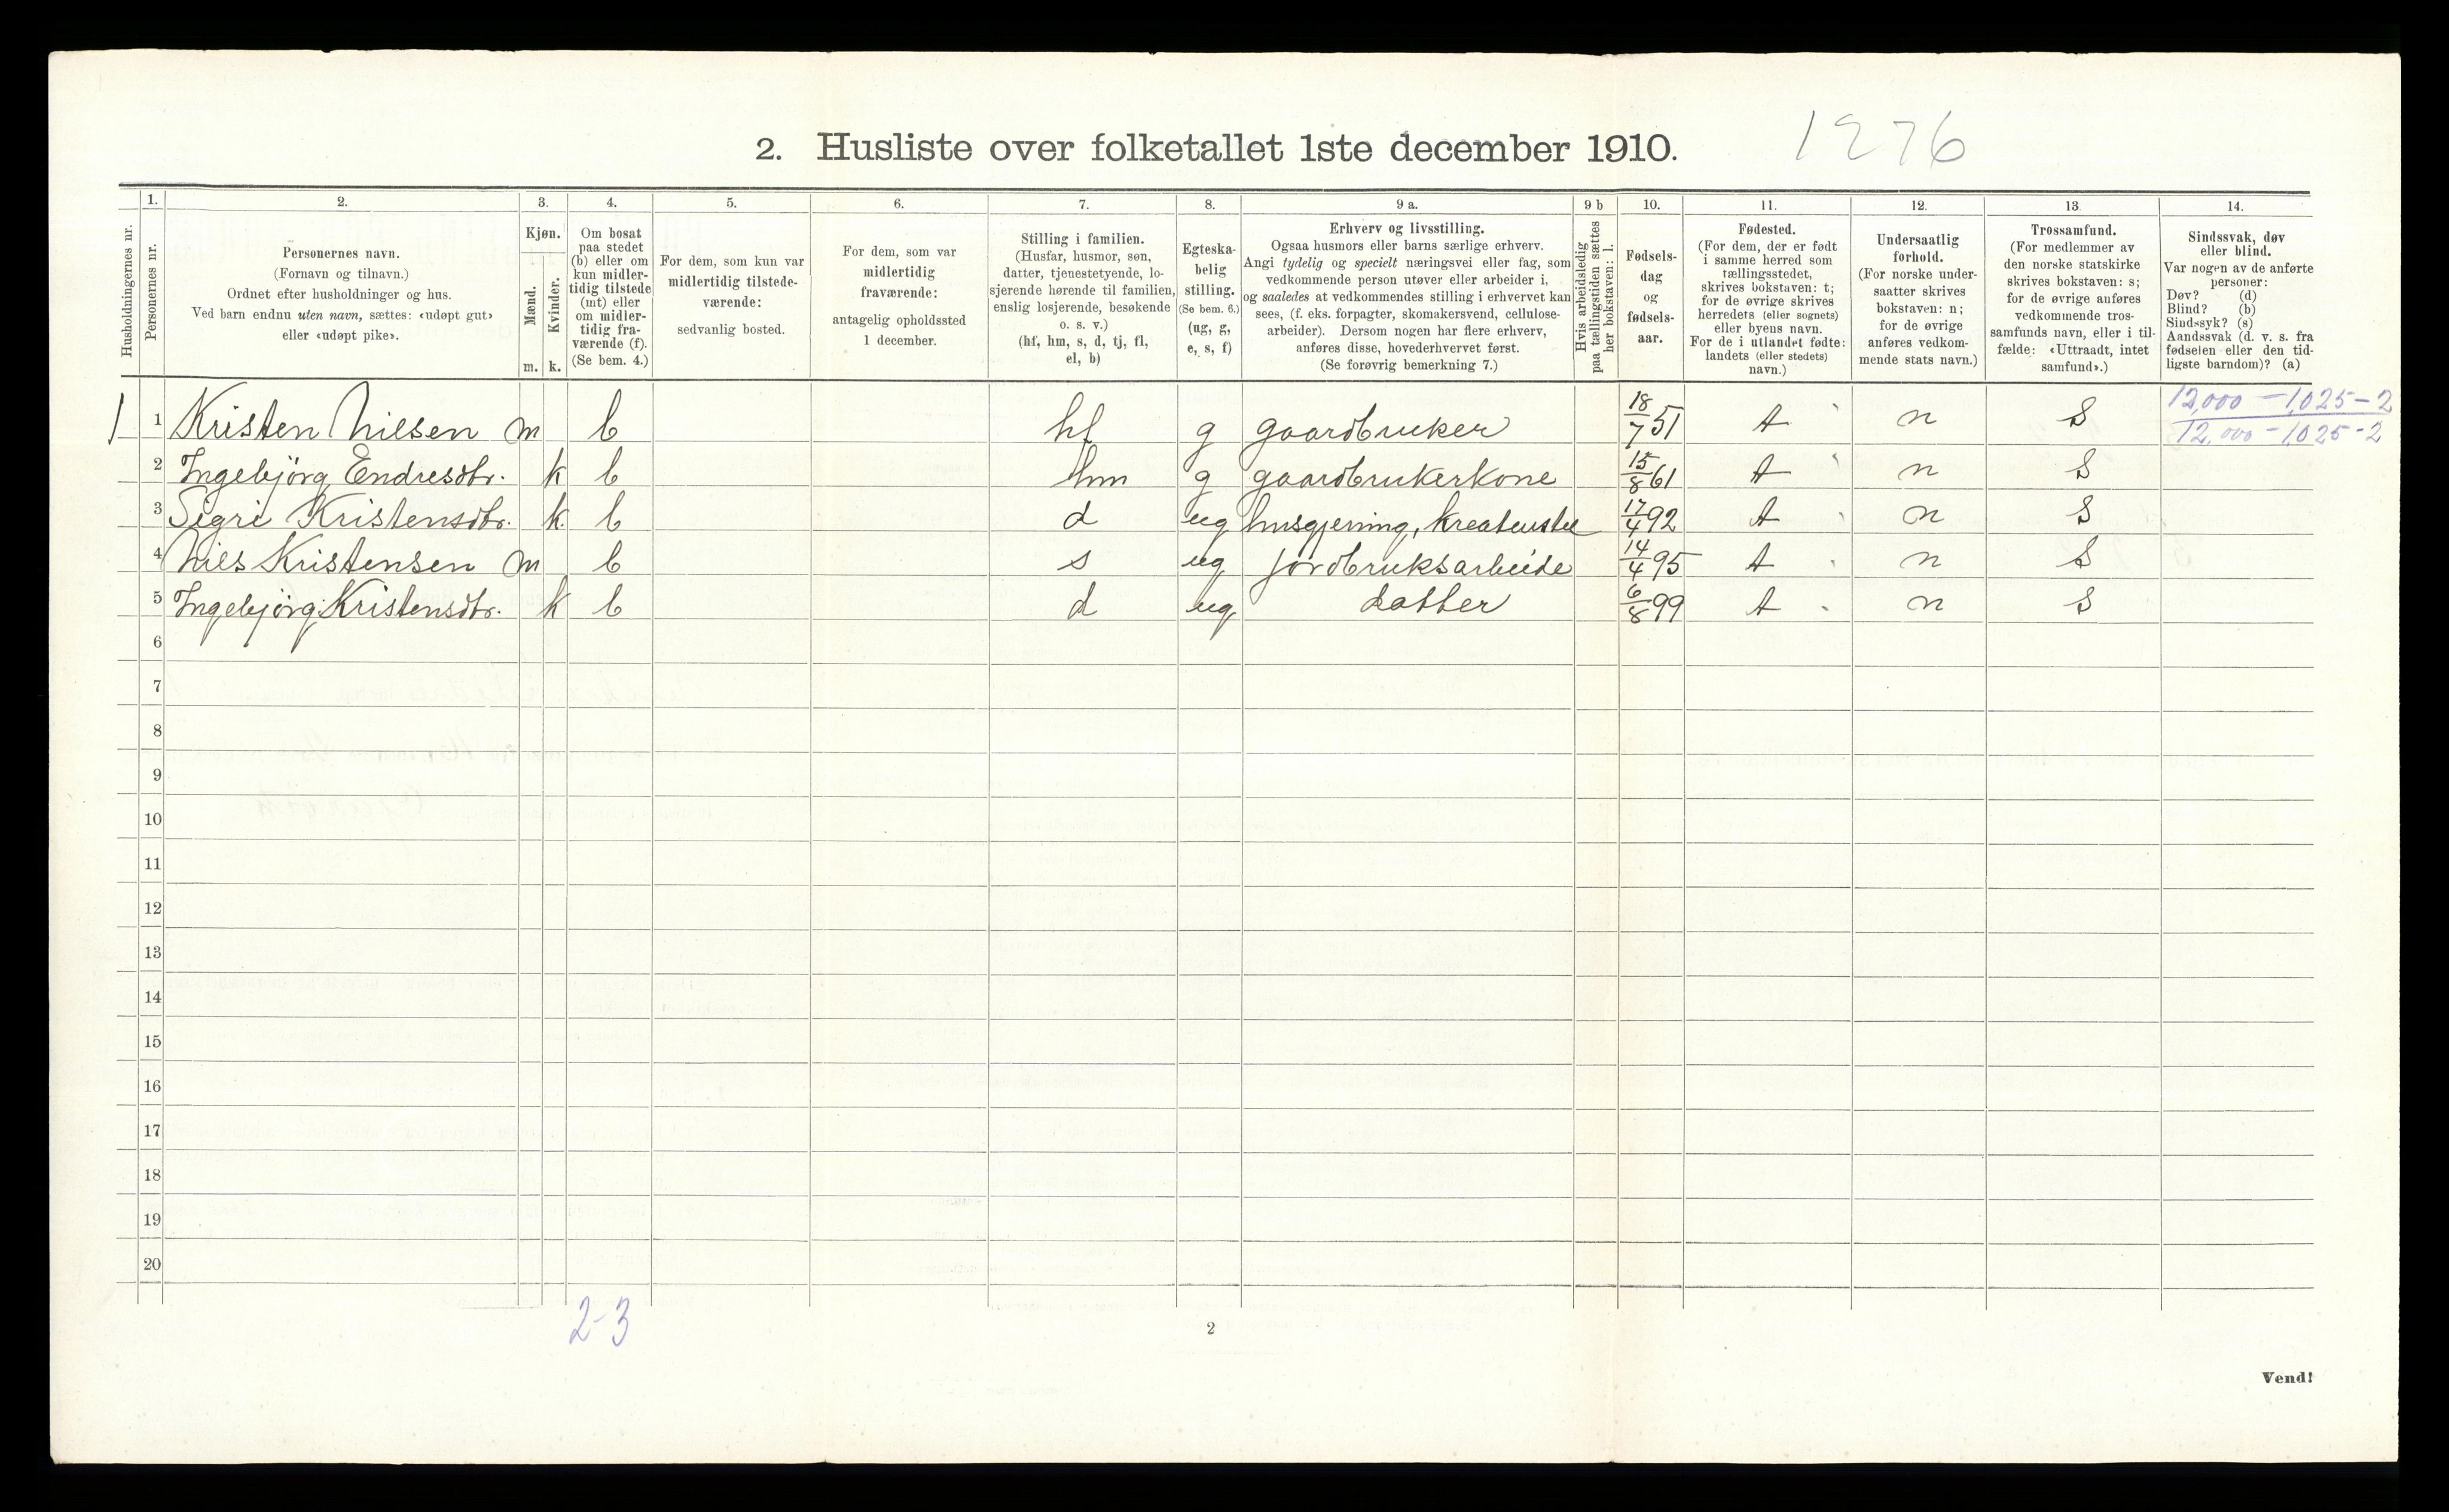 2. Husliste over folketallet 1ste december 1910.
1276
Husholdningernes nr.
1.
Personernes nr.
2.
Personernes navn.
(Fornavn og tilnavn.)
Ordnet efter husholdninger og hus.
Ved barn endnu uten navn, sættes: «udøpt gut»
eller «udøpt pike».
3.
Kjøn.
Mænd.
Kvinder.
m. k.
4.
Om bosat
paa stedet
(b) eller om
kun midler-
tidig tilstede
(mt) eller
om midler-
tidig fra-
værende (f).
(Se bem. 4.)
5.
For dem, som kun var
midlertidig tilstede-
værende:
sedvanlig bosted.
6.
For dem, som var
midlertidig
fraværende:
antagelig opholdssted
1 december.
7.
Stilling i familien.
(Husfar, husmor, søn,
datter, tjenestetyende, lo-
sjerende hørende til familien,
enslig losjerende, besøkende
o. s. v.)
(hf, hm, s, d, tj, fl,
el, b)
8.
Egteska-
belig
stilling.
(Se bem. 6.)
(ug, g,
e, s, f)
9 a.
Erhverv og livsstilling.
Ogsaa husmors eller barns særlige erhverv.
Angi tydelig og specielt næringsvei eller fag, som
vedkommende person utøver eller arbeider i,
og saaledes at vedkommendes stilling i erhvervet kan
sees, (f. eks. forpagter, skomakersvend, cellulose-
arbeider). Dersom nogen har flere erhverv,
anføres disse, hovederhvervet først.
(Se forøvrig bemerkning 7.)
9 b
Hvis arbeidsledig
paa tællingstiden sættes
her bokstaven: l.
10.
Fødsels-
dag
og
fødsels-
aar.
11.
Fødested.
(For dem, der er født
i samme herred som
tællingsstedet,
skrives bokstaven: t;
for de øvrige skrives
herredets (eller sognets)
eller byens navn.
For de i utlandet fødte:
landets (eller stedets)
navn.)
12.
Undersaatlig
forhold.
(For norske under-
saatter skrives
bokstaven: n;
for de øvrige
anføres vedkom-
mende stats navn.)
13.
Trossamfund.
(For medlemmer av
den norske statskirke
skrives bokstaven: s;
for de øvrige anføres
vedkommende tros-
samfunds navn, eller i til-
fælde: «Uttraadt, intet
samfund».)
14.
Sindssvak, døv
eller blind.
Var nogen av de anførte
personer:
Døv? (d)
Blind? (b)
Sindssyk? (s)
Aandssvak (d. v. s. fra
fødselen eller den tid-
ligste barndom)? (a)
1 1 Kristen Nilsen m b hf g gaardbruker 18/7 51 t n S 12,000 – 1,025 – 2
12,000 – 1,025 – 2
2 Ingebjörg Endresdtr. k b hm g gaardbrukerkone 15/8 61 t n S
3 Sigri Kristensdtr. k b d ug husgjerning, kreaturstel 17/4 92 t n S
4 Niels Kristensen m b s ug jordbruksarbeide 14/4 95 t n S
5 Ingebjörg Kristensdtr. k b d ug datter 6/8 99 t n S
6
7
8
9
10
11
12
13
14
15
16
17
18
19
20
2-3
2
Vend!